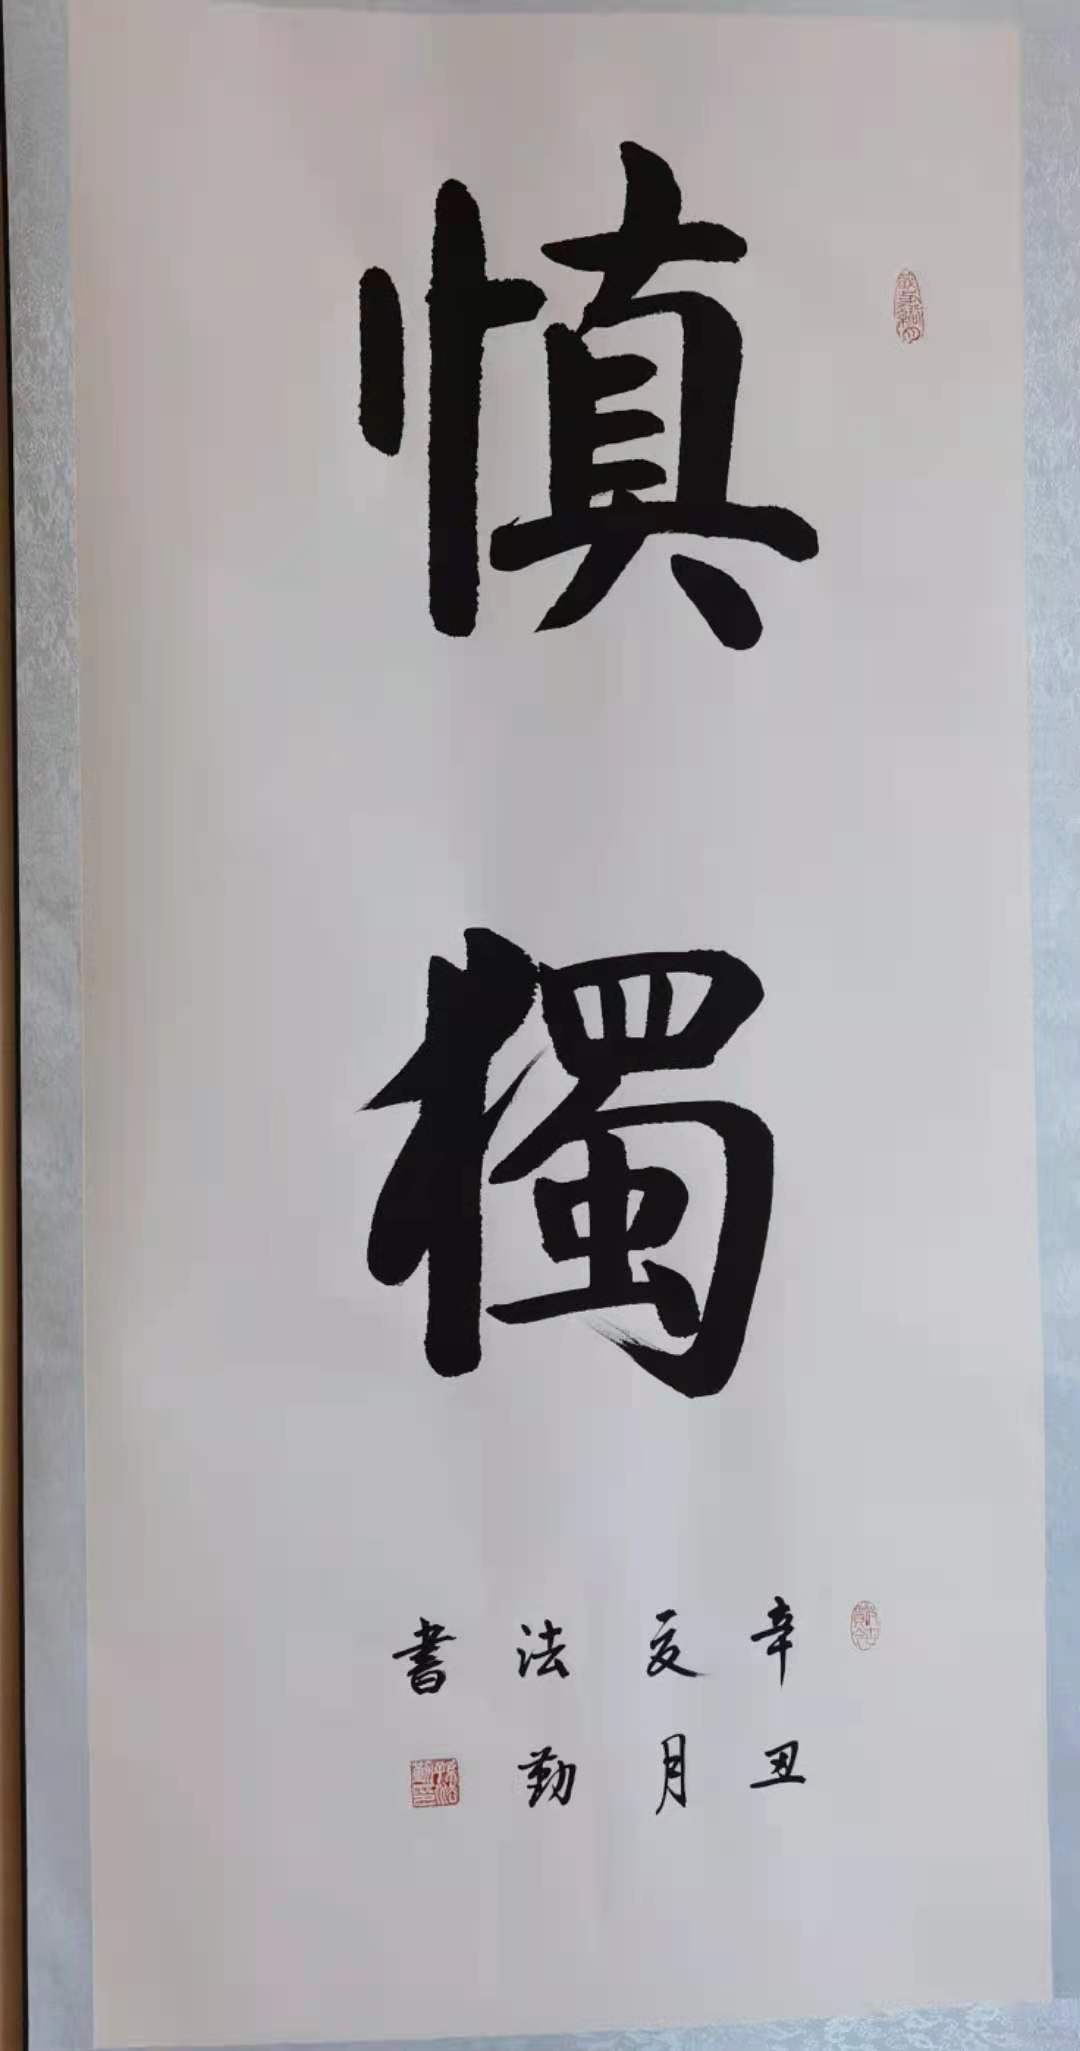 慎獨
辛丑
亥月
法勤
書